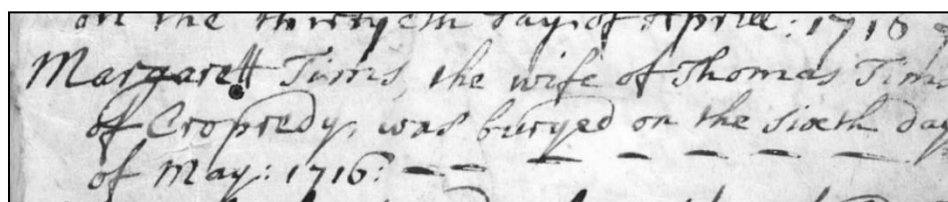 on the thirtyeth day of Aprill: 1716
Margarett Tims, the wife of Thomas Tims
of Cropredy, was buryed on the sixth day
of May: 1716: